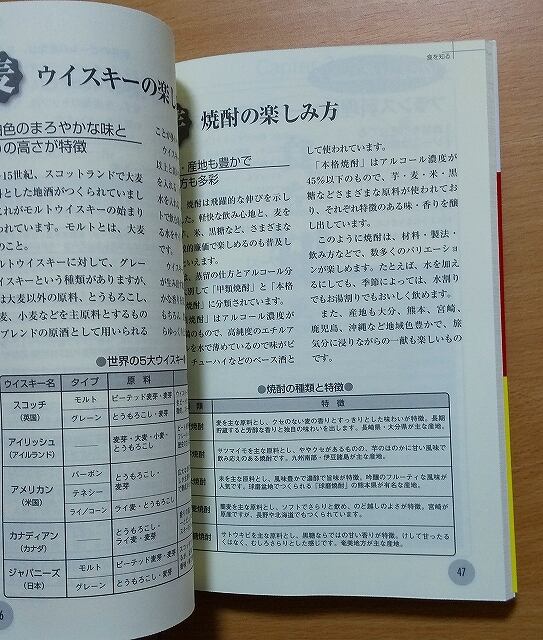 麦
ウイスキーの楽し
白色のまろやかな味と
の高さが特徴
15世紀、スコットランドで大麦
料とした地酒がつくられていまし
これがモルトウイスキーの始まり
われています。モルトとは、大麦
のこと。
ルトウイスキーに対して、グレー
イスキーという種類がありますが、
は大麦以外の原料、とうもろこし、
麦、小麦などを主原料とするもの
ブレンドの原酒として用いられる
●世界の5大ウイスキー
ウイスキー名 タイプ 原料
スコッチ
(英国)
モルト ピーテッド麦芽・麦芽
グレーン とうもろこし・麦芽
アイリッシュ
(アイルランド)
麦芽・大麦・小麦・
とうもろこし
アメリカン
(米国)
バーボン
テネシー
とうもろこし・
麦芽
ライ/コーン ライ麦・とうもろこし
カナディアン
(カナダ)
とうもろこし・
ライ麦・麦芽
ジャパニーズ
(日本)
モルト ピーテッド麦芽・麦芽
グレーン とうもろこし・麦芽
6
食を知る
焼酎の楽しみ方
・産地も豊かで
方も多彩
焼酎は飛躍的な伸びを示し
た。軽快な飲み心地と、麦を
米、黒糖など、さまざまな
的廉価で楽しめるのも普及し
いえます。
は、蒸留の仕方とアルコール分
別して「甲類焼酎」と「本格
焼酎」に分類されています。
焼酎」はアルコール濃度が
のもので、高純度のエチルア
ルを水で薄めているので味がピ
チューハイなどのベース酒と
して使われています。
「本格焼酎」はアルコール濃度が
45%以下のもので、芋・麦・米・黒
糖などさまざまな原料が使われてお
り、それぞれ特徴のある味・香りを醸
し出しています。
このように焼酎は、材料・製法・
飲み方などで、数多くのバリエーショ
ンが楽しめます。たとえば、水を加え
るにしても、季節によっては、水割り
でもお湯割りでもおいしく飲めます。
また、産地も大分、熊本、宮崎、
鹿児島、沖縄など地域色豊かで、旅
気分に浸りながらの一献も楽しいもの
です。
●焼酎の種類と特徴●
類 特徴
焼酎 麦を主な原料とし、クセのない麦の香りとすっきりとした味わいが特徴。長期
貯蔵すると芳醇な香りと独自の味わいを出します。長崎県・大分県が主な産地。
焼酎 サツマイモを主な原料とし、ややクセがあるものの、芋のほのかに甘い風味で
飲み応えのある焼酎です。九州南部・伊豆諸島が主な産地。
焼酎 米を主な原料とし、風味豊かで濃醇で旨味が特徴。吟醸のフルーティな風味が
人気です。球磨盆地でつくられる「球磨焼酎」の熊本県が有名な産地。
焼酎 蕎麦を主な原料とし、ソフトでさらりと飲め、のど越しのよさが特徴。宮崎が
原産ですが、長野や北海道でもつくられています。
焼酎 サトウキビを主な原料とし、黒糖ならではの甘い香りが特徴。けして甘ったる
くはなく、むしろさらりとした感じです。奄美地方が主な産地。
47